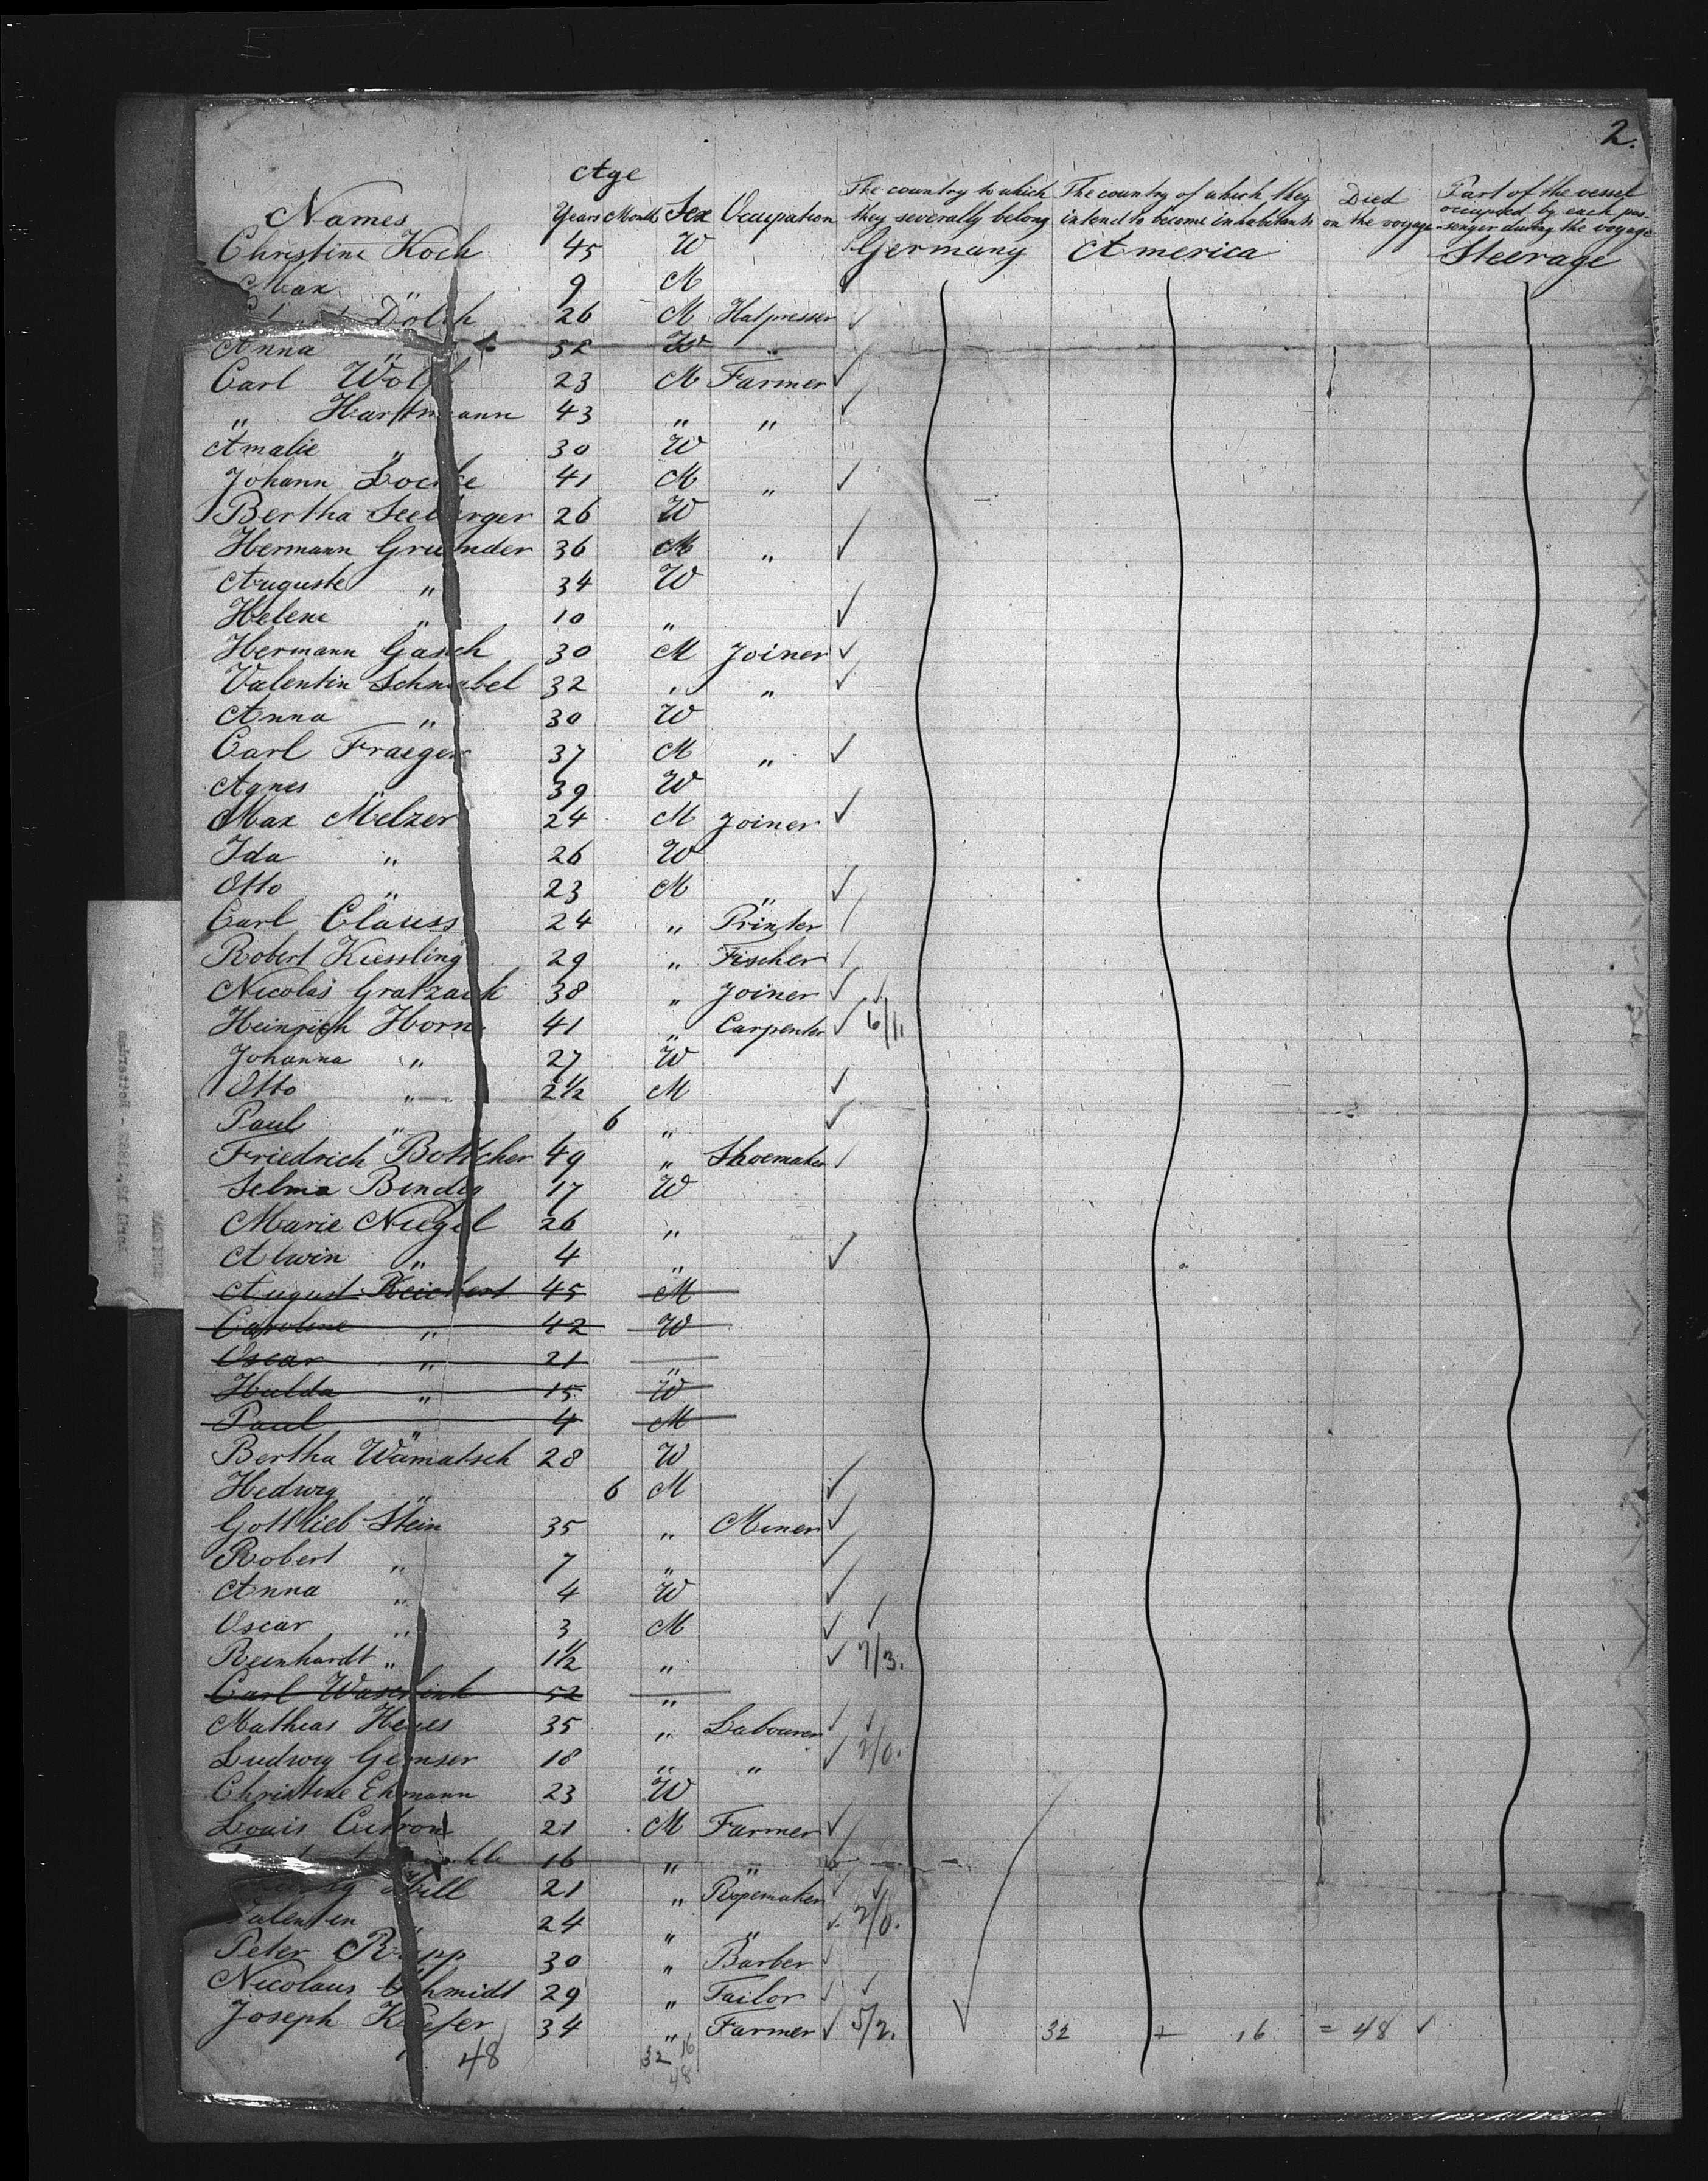 2.
Age
Names Years Months Sex Occupation The country to which they severally belong The country of which they intend to become inhabitants Died on the voyage Part of the vessel occupied by each passenger during the voyage
Christine Koch 45 W Germany America Steerage
Max " 9 M
Dölch 26 M Hatpresser ✓
Anna " 52 W "
Carl Wolf 23 M Farmer ✓
" Harttmann 43 " " ✓
Amalie " 30 W
Johann Locke 41 M " ✓
Bertha Seeberger 26 W
Hermann Gruender 36 M " ✓
Auguste " 34 W
Helene " 10 " ✓
Hermann Gasch 30 M Joiner ✓
Valentin Schnabel 32 " " ✓
Anna " 30 W
Carl Fraeger 37 M " ✓
Agnes " 39 W
Max Melzer 24 M Joiner ✓
Ida " 26 W
Otto " 23 M " ✓
Carl Clauss 24 " Printer
Robert Kiessling 29 " Fischer ✓
Nicolas Gratzack 38 " Joiner ✓ ✓
Heinrich Horn 41 " Carpenter ✓ 6/11
Johanna " 27 W
Otto " 2 1/2 M ✓
Paul " 6 " ✓
Friedrich Bottcher 49 " Shoemaker ✓
Selma Bindig 17 W
Marie Niegel 26 "
Alwin " 4 " ✓
August Reichert 45 M
Caroline " 42 W
Oscar " 21 "
Hulda " 15 W
Paul " 4 M
Bertha Wamatsch 28 W
Hedwig " 6 M ✓
Gottlieb Stein 35 " Miner ✓
Robert " 7 " ✓
Anna " 4 W ✓
Oscar " 3 M ✓ ✓
Reinhardt " 1 1/2 " ✓ 7/3.
Carl Waschink 52 "
Mathias Heues 35 " Labourer ✓ ✓
Ludwig Gemser 18 " " ✓ 2/0.
Christine Ehmann 23 W
Louis Citron 21 M Farmer ✓
16 " " ✓
Hill 21 " Ropemaker ✓ ✓
Valentin " 24 " " ✓ 2/0.
Peter Rapp 30 " Barber ✓
Nicolaus Schmidt 29 " Tailor ✓ ✓
Joseph Kiefer 34 " Farmer ✓ 5/2. ✓ 32 + 16 = 48 ✓
48 32 16
48